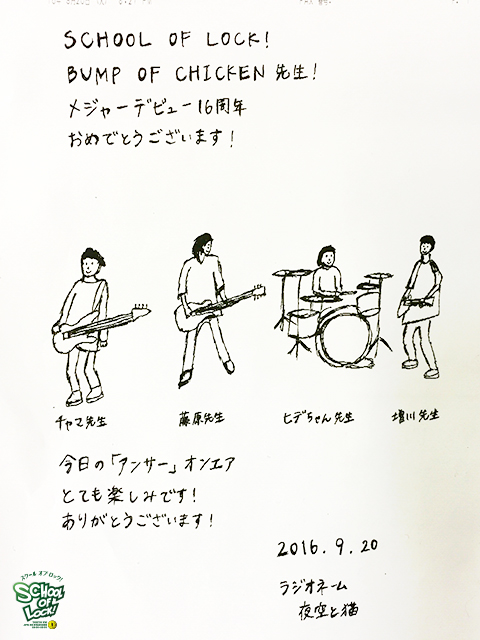 SCHOOL OF LOCK!
BUMP OF CHICKEN 先生!
メジャーデビュー16周年
おめでとうございます!
チャマ先生
藤原先生
ヒデちゃん先生
増川先生
今日の「アンサー」オンエア
とても楽しみです!
ありがとうございます!
2016.9.20
ラジオネーム
夜空と猫
スクール オブ ロック!
SCHOOL
OF
LOCK!